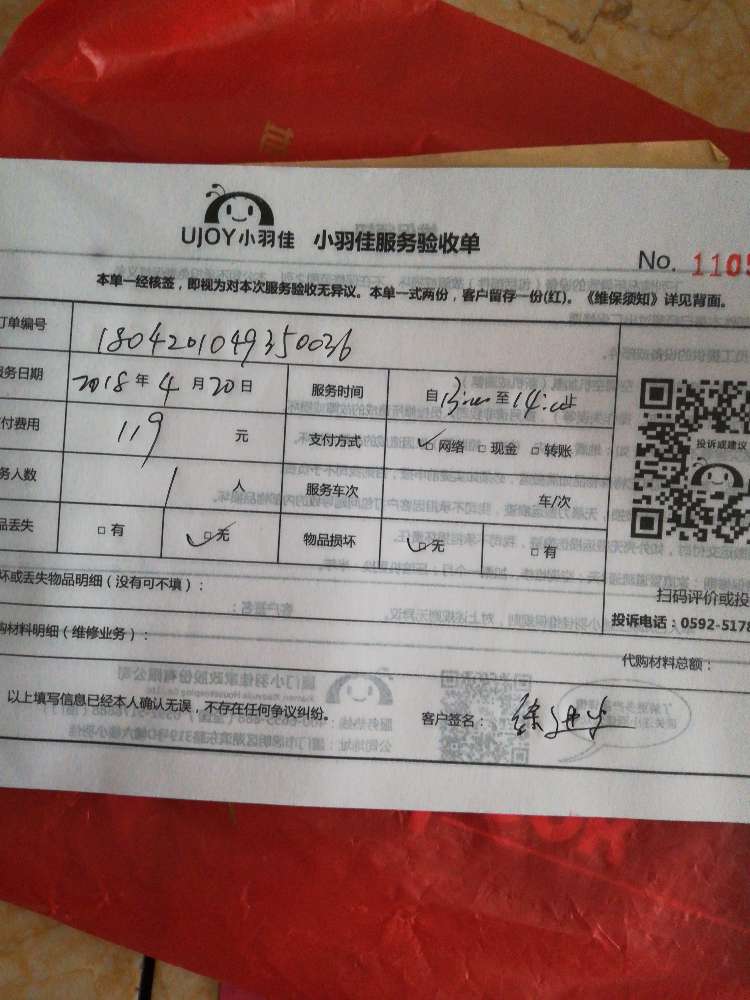 UJOY小羽佳 小羽佳服务验收单
No. 1105
本单一经核签，即视为对本次服务验收无异议。本单一式两份，客户留存一份(红)。《维保须知》详见背面。
订单编号 1804201049350036
服务日期 2018 年 4 月 20 日 服务时间 自 13:00 至 14:00 止
付费用 119 元 支付方式 ☑网络 □现金 □转账
务人数 1 人 服务车次 车/次
品丢失 □有 ☑无 物品损坏 ☑无 □有
投诉或建议
坏或丢失物品明细（没有可不填）：
扫码评价或投
投诉电话：0592-5178
购材料明细（维修业务）：
代购材料总额：
以上填写信息已经本人确认无误，不存在任何争议纠纷。 客户签名：